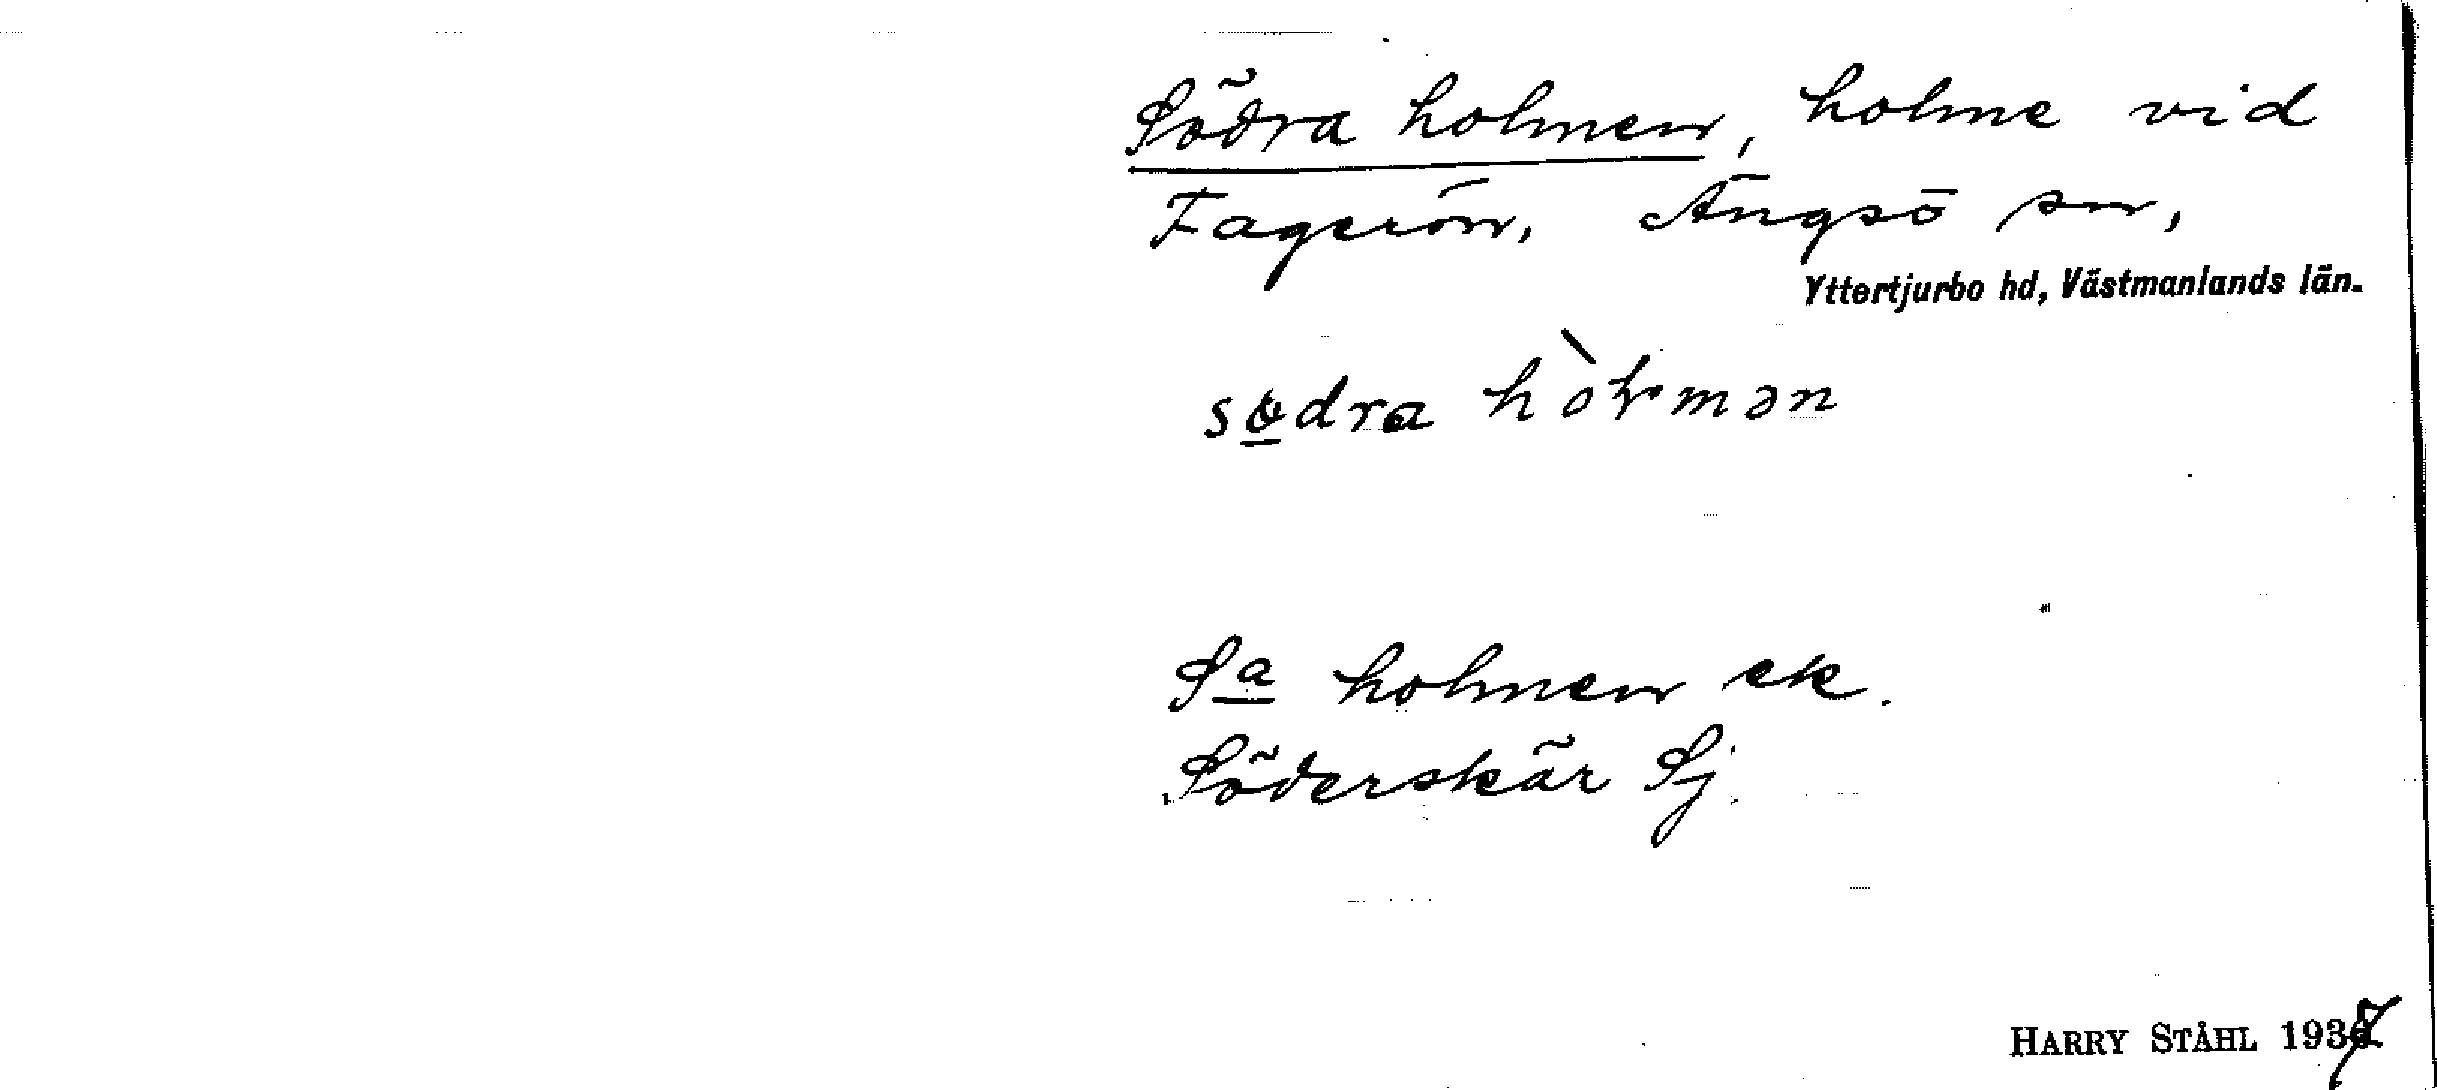 Södra holmen, holme vid
Fagerön, Ängsö sn,
Yttertjurbo hd, Västmanlands län.
södra hòlmən
Sa holmen ek.
Söderskär Sj.
HARRY STÅHL 1937